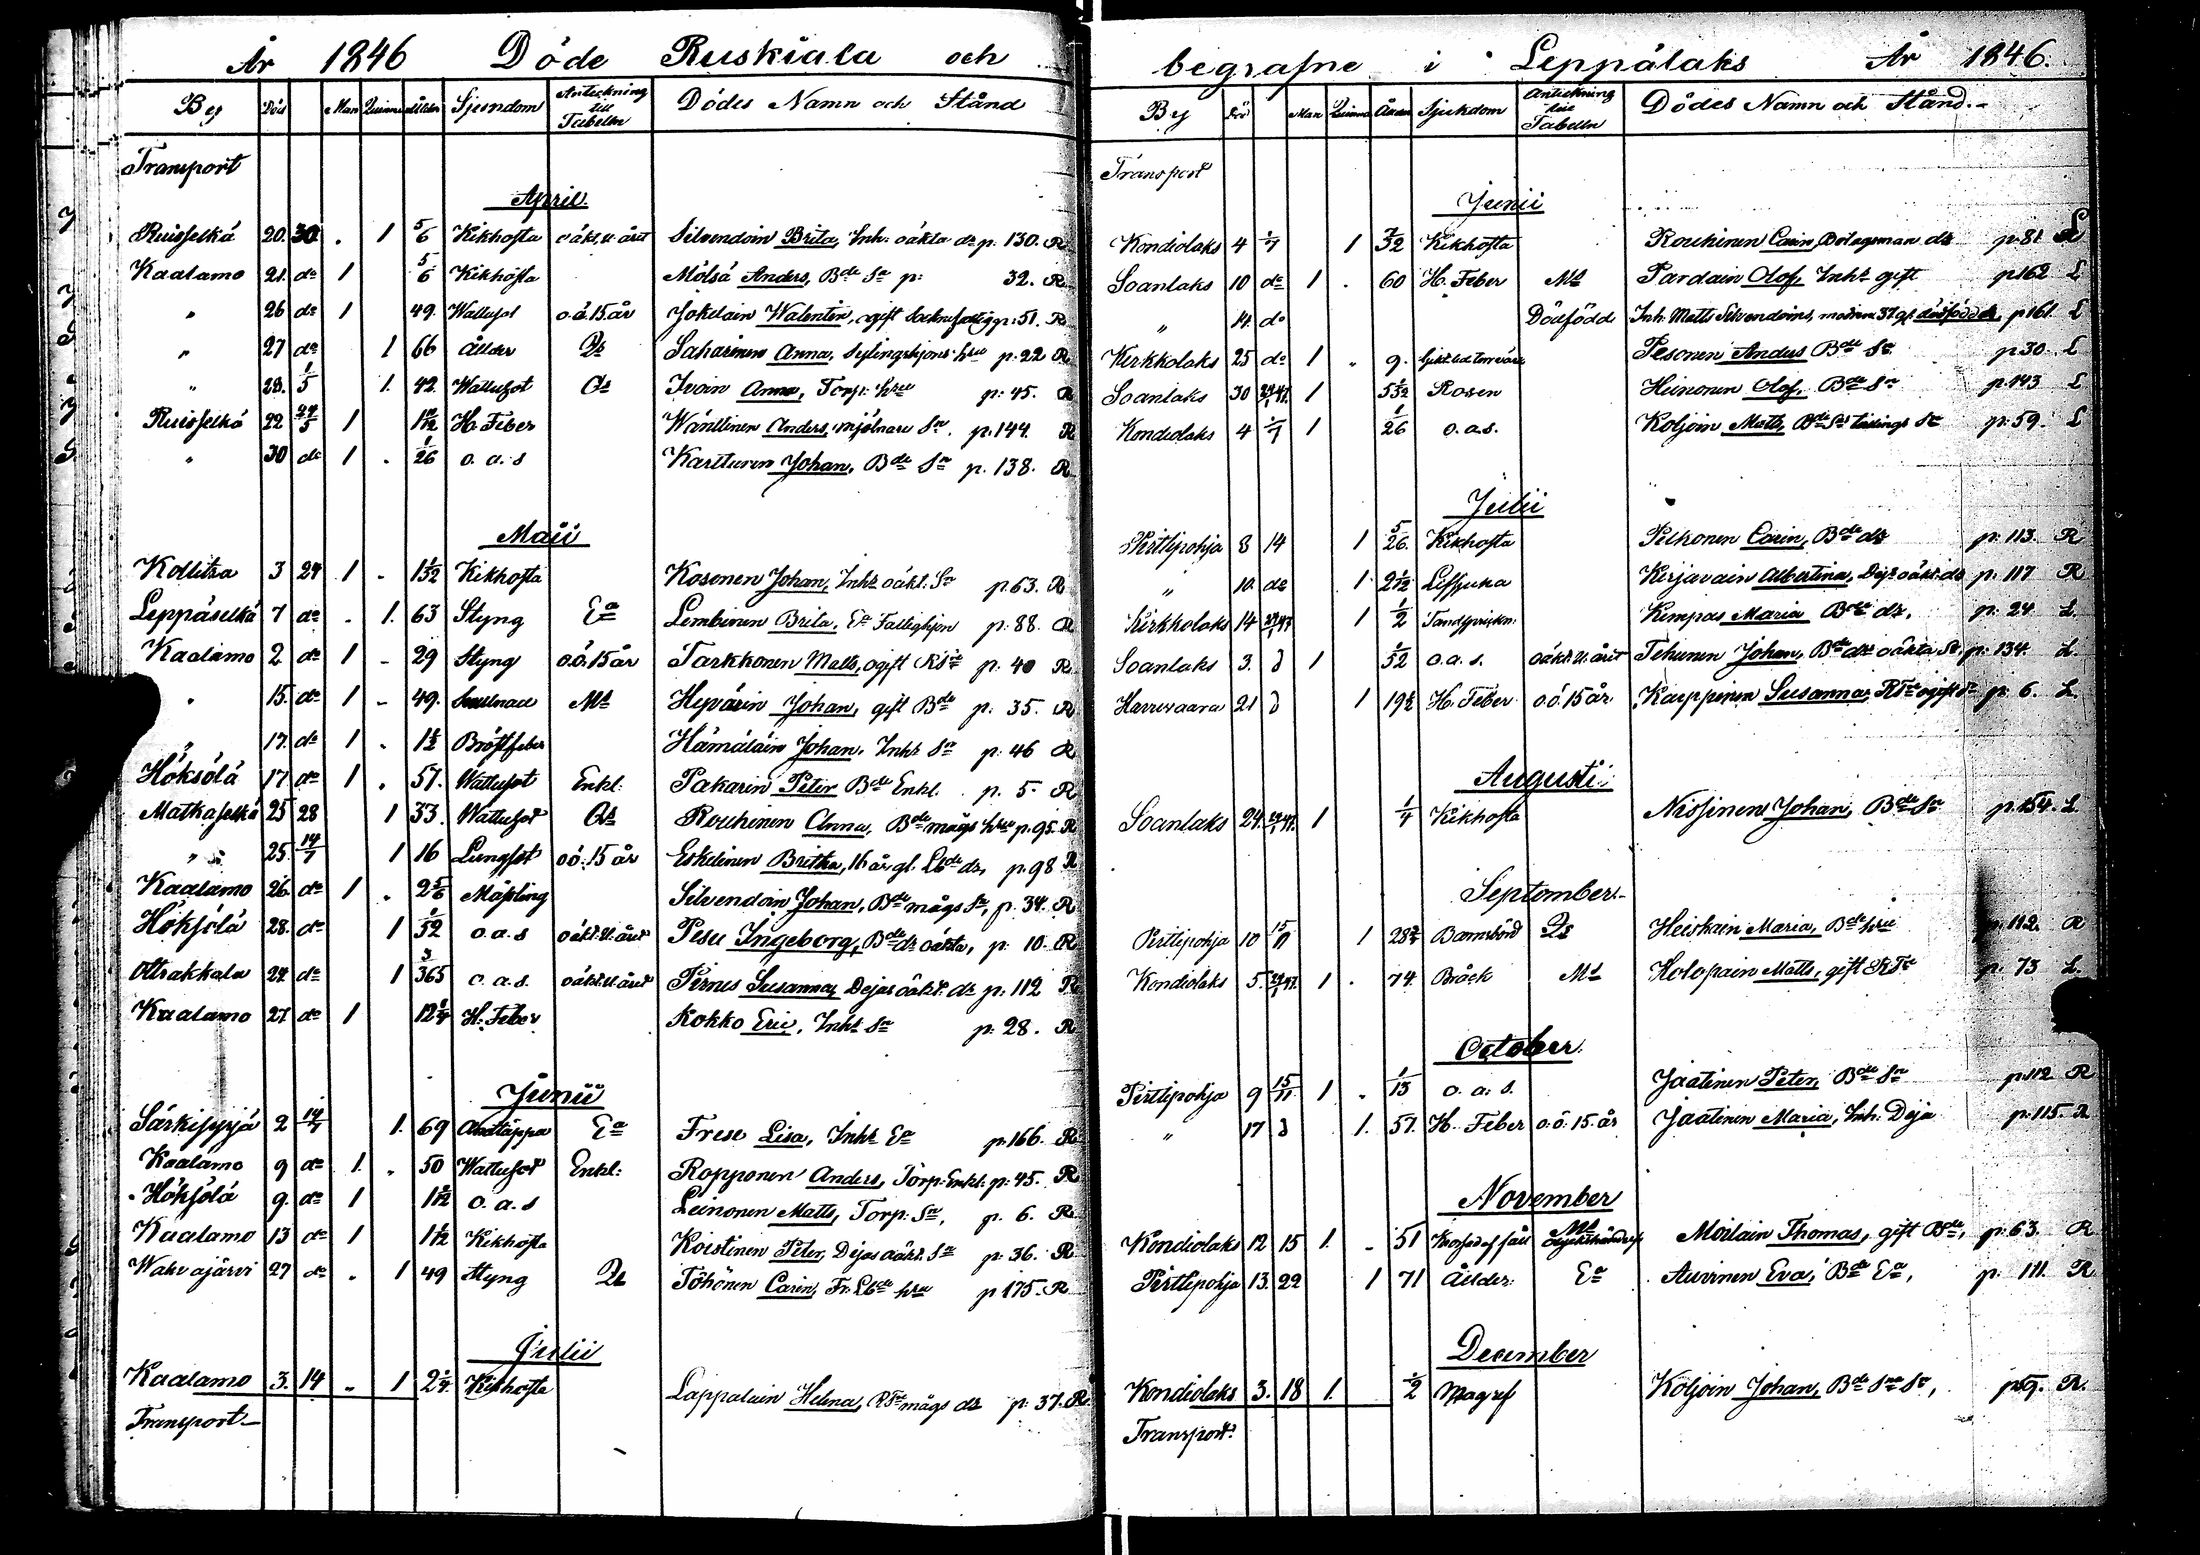 År 1846 Döde Ruskiala och
By Död Man Quinna Ålder Sjerndom Anteckning till Tabellen Dödes Namn och Stånd
Transport
April
Ruisselkä 20. 30. . 1 5/6 Kikhosta oäkt. u. året Silvendoin Brita, Inh. oäkta dr p. 130. R
Kaalamo 21. do 1 5/6 Kikhosta Mölsä Anders, Bde Sn p: 32. R
" 26 do 1 49. Wattusot o.ö. 15 år Jokelain Walentin, ogift p. 51. R
" 27 do 1 66 Ålder Qs Saharinen Anna, hru p. 22 R
" 28. 1/5 1. 42. Wattusot Qs Ivoin Anna, Torp. hru p. 45. R
Ruisselkä 22 24/5 1 1 1/12 H. Feber Wänttinen Anders, mjölnare Sn. p. 144. R
" 30 do 1 . 1/26 o. a. s Karttunen Johan, Bde Sn p. 138. R
Maii
Kollitsa 3 24 1 - 1 3/52 Kikhosta Kosonen Johan, Inhs oäkt. Sn p. 63. R
Leppäselkä 7 do . 1. 63 Styng Ea Lembinen Brita, Ea Fattighjon p. 88. R
Kaalamo 2 do 1 - 29 Styng o.ö. 15 år Tarkkonen Matts, ogift p. 40 R
" 15. do 1 - 49. Ms Hyvärin Johan, gift Bde p. 35. R
" 17. do 1 . 1 1/2 Bröstfeber Hämäläin Johan, Inhs Sn p. 46 R
Höksölä 17 do 1 . 57. Wattusot Enkl. Pakarin Peter Bde Enkl. p. 5 R
Matkaselkä 25 28 1 33. Wattusot Qs Rouhinen Anna, Bde mågs hru p. 95. R
" 25. 14/7 1 16 Lungsot o.ö. 15 år Eskelinen Britha, 16 år gl. Lbde dr, p. 98 R
Kaalamo 26. do 1 . 2 5/6 Mässling Silvendoin Johan, Bde mågs Sn, p. 34. R
Höksölä 28. do 1 1/52 o.a.s oäkt. u. året Pesu Ingeborg, Bde dr oäkta, p. 10. R
Otrakkala 24 do 1 3/365 o. a. s. oäkt. u. året Pirnes Susanna, Dejas oäkt. dr p. 112 R
Kaalamo 27 do 1 12 1/4 H. Feber Kokko Eric, Inhs Sn p. 28. R
Junii
Särkisyrjä 2 14/7 1. 69 Ea Frese Lisa, Inhs Ea p. 166. R
Kaalamo 9 do 1. . 50 Wattusot Enkl: Ropponen Anders, Torp. Enkl. p. 45. R
Höksölä 9. do 1 1 1/12 o. a. s Leinonen Matts, Torp. Sn, p. 6. R
Kaalamo 13 do 1 1 1/12 Kikhosta Koistinen Peter, Dejas oäkt. Sn p. 36. R
Wahvajärvi 27 do . 1 49 Styng Qs Töhönen Carin, Fr. Lbde hru p. 175. R
Julii
Kaalamo 3. 14 " 1 2 1/4 Kikhosta Lappalain Helena, mågs dr p. 37. R
Transport

begrafne i Leppälaks År 1846.
By Död Man Quinna Ålder Sjukdom Anteckning till Tabellen Dödes Namn och Stånd.
Transport
Junii
Kondiolaks 4 1/7 1 7/52 Kikhosta Rouhinen Carin, Bolagsman dr p. 81. R
Soanlaks 10 do 1 . 60 H. Feber Ms Pardain Olof, Inhs gift p. 162 L
" 14. do Dödfödd Inh. Matts Silvendoins, modren 37. gl. dödfödd dr, p. 161. L
Kerkkolaks 25 do 1 . 9. Pesonen Anders Bde Sn. p. 30. L
Soanlaks 30 24/1 47. 1 5 5/52 Rosen Heinonen Olof. Bde Sn p. 143 L
Kondiolaks 4 1/7 1 1/26 o.a.s. Koljoin Matts, Bde Sn tvillings Sn p. 59. L
Julii
Pirttipohja 8 14 1 5/26. Kikhosta Pelkonen Carin, Bde dr p. 113. R
" 10. do 1. 2 1/12 Lefsjuka Kirjavain Albertina, Dejs oäkt. dr p. 117 R
Kirkkolaks 14 24/1 47. 1 1/2 Tandsprickn. Kempas Maria Bde dr. p. 24. L
Soanlaks 3. d 1 1/52 o.a.s. oäkt. u. året Tehunen Johan, Bde drs oäkta Sn, p. 134. L
Harrewaara 21 d 1 19 1/2 H. Feber o.ö. 15 år Karppinen Susanna, p. 6. L.
Augusti.
Soanlaks 24. 24/1 47. 1 1/4 Kikhosta Nissinen Johan, Bde Sn p. 154. L.
September.
Pirttipohja 10 15/11 1 28 3/4 Barnsbörd Qs Heiskain Maria, Bde hru p. 112. R
Kondiolaks 5. 24/1 47. 1 . 74. Bråck Ms Holopain Matts, gift p. 73 L.
October.
Pirttipohja 9 15/11. 1 . 1/13 o. a. s. Jaatinen Peter, Bde Sn p. 112 R
" 17 d 1. 57. H. Feber o.ö. 15. år Jaatinen Maria, Inh. Deja p. 115. R
November
Kondiolaks 12 15 1. - 51 Ms Moilain Thomas, gift Bde, p. 63. R
Pirttipohja 13. 22 1 71 Ålder. Ea Auvinen Eva, Bde Ea, p. 111. R
December
Kondiolaks 3. 18 1. 1/2 Magref Koljoin Johan, Bde Sns Sn, p. 59. R.
Transport.